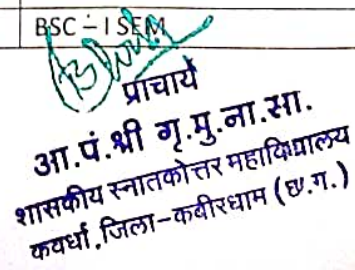 BSC – I SEM
प्राचार्य
आ.पं.श्री गृ.मु.ना.सा.
शासकीय स्नातकोत्तर महाविद्यालय
कवर्धा,जिला-कबीरधाम (छ.ग.)